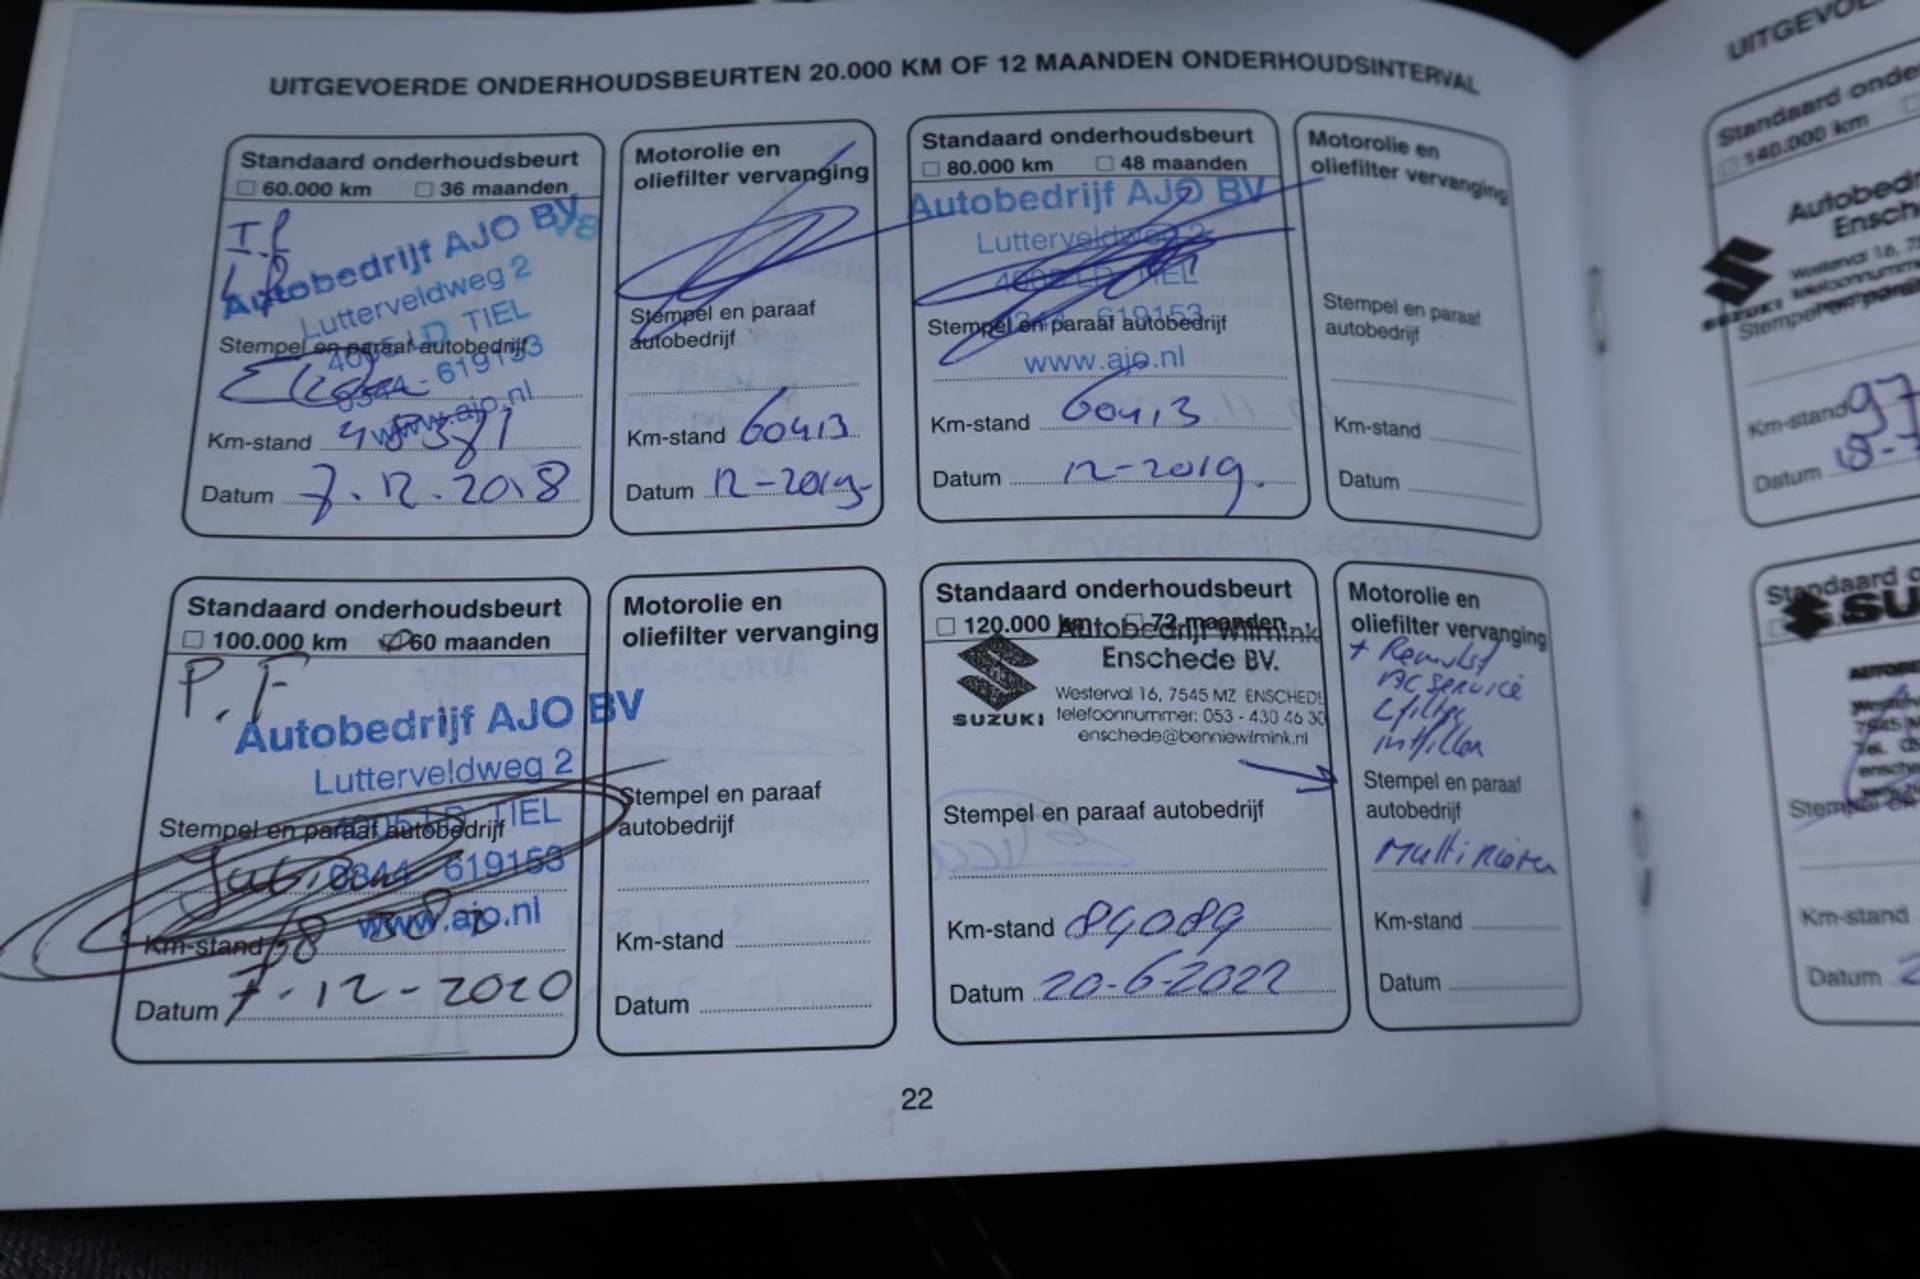 UITGEVOERDE ONDERHOUDSBEURTEN 20.000 KM OF 12 MAANDEN ONDERHOUDSINTERVAL
Standaard onderhoudsbeurt
60.000 km 36 maanden
I.f
Autobedrijf AJO BV
Lutterveldweg 2
4005 LD TIEL
Stempel en paraaf autobedrijf
0344 - 619153
www.ajo.nl
Km-stand
Datum 7.12.2018
Motorolie en
oliefilter vervanging
Stempel en paraaf
autobedrijf
Km-stand 60413
Datum 12-2019
Standaard onderhoudsbeurt
80.000 km 48 maanden
Autobedrijf AJO BV
Lutterveldweg 2
4005 LD TIEL
Stempel en paraaf autobedrijf
0344 619153
www.ajo.nl
Km-stand 60413
Datum 12-2019.
Motorolie en
oliefilter vervanging
Stempel en paraaf
autobedrijf
Km-stand
Datum
Standaard onderhoudsbeurt
100.000 km 60 maanden
P.F
Autobedrijf AJO BV
Lutterveldweg 2
4005 LD TIEL
Stempel en paraaf autobedrijf
0344 619153
www.ajo.nl
Km-stand
Datum 7-12-2020
Motorolie en
oliefilter vervanging
Stempel en paraaf
autobedrijf
Km-stand
Datum
Standaard onderhoudsbeurt
120.000 km 72 maanden
Autobedrijf Wilmink
Enschede BV.
SUZUKI
Westerval 16, 7545 MZ ENSCHEDE
telefoonnummer: 053 - 430 46 30
enschede@benniewilmink.nl
Stempel en paraaf autobedrijf
Km-stand 89089
Datum 20-6-2022
Motorolie en
oliefilter vervanging
+ Remvlst
AC service
Stempel en paraaf
autobedrijf
Multiriem
Km-stand
Datum
22
Standaard
140.000 km
SUZUKI
Westerval 16,
Km-stand 97
Datum 18-
Km-stand
Datum 2